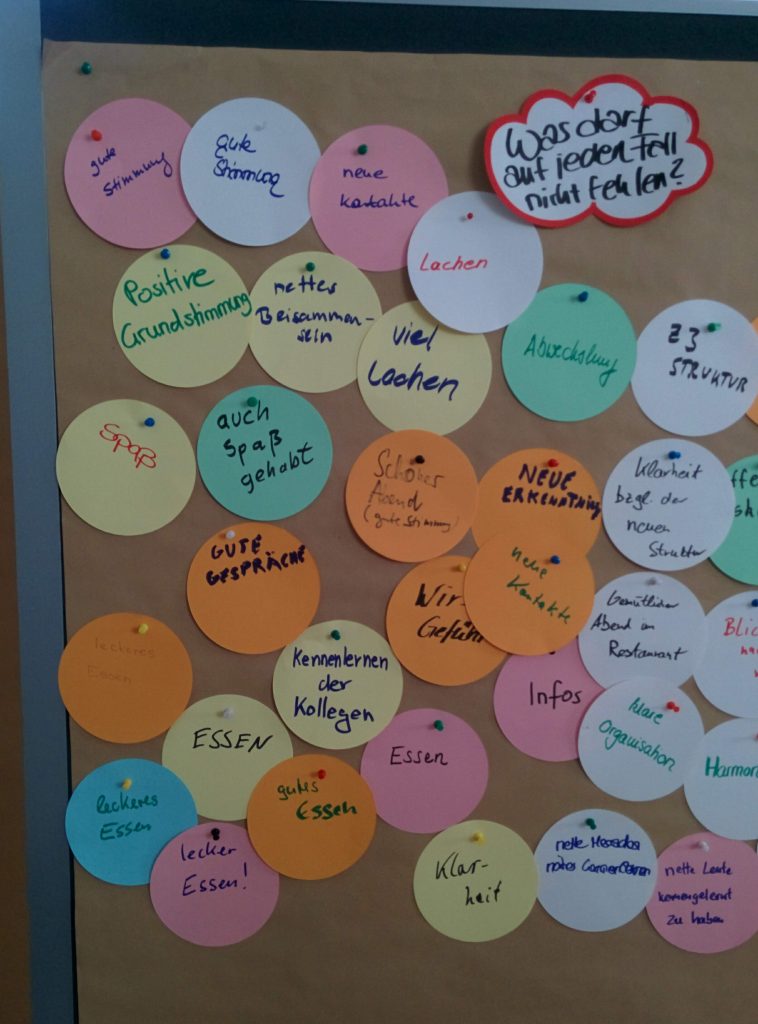 Was darf
auf jeden Fall
nicht fehlen?
gute
Stimmung
gute
Stimmung
neue
Kontakte
Lachen
Positive
Grundstimmung
nettes
Beisammen-
sein
viel
Lachen
Abwechslung
STRUKTUR
Spaß
auch
Spaß
gehabt
Schöner
Abend
(gute Stimmung)
NEUE
ERKENNTNISSE
Klarheit
bzgl. der
neuen
Struktur
GUTE
GESPRÄCHE
Wir
Gefühl
neue
Kontakte
Gemütlicher
Abend im
Restaurant
Blic
leckeres
Essen
Kennenlernen
der
Kollegen
Infos
klare
Organisation
ESSEN
Essen
Harmon
leckeres
Essen
gutes
Essen
lecker
Essen!
Klar-
heit
nette
nettes
nette Leute
kennengelernt
zu haben